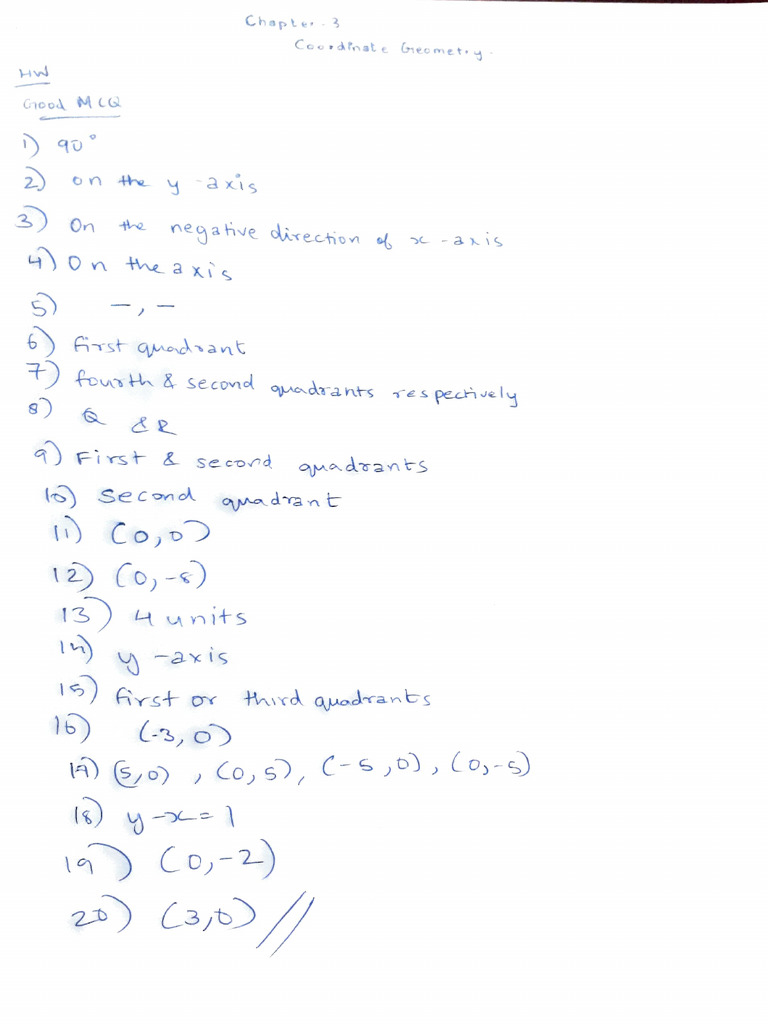 Chapter-3
Coordinate Geometry.
HW
Good MCQ
1) 90°
2) on the y-axis
3) On the negative direction of x-axis
4) On the axis
5) -, -
6) first quadrant
7) fourth & second quadrants respectively
8) Q & R
9) First & second quadrants
10) second quadrant
11) (0,0)
12) (0,-8)
13) 4 units
14) y-axis
15) first or third quadrants
16) (-3,0)
17) (5,0), (0,5), (-5,0), (0,-5)
18) y-x=1
19) (0,-2)
20) (3,0)//